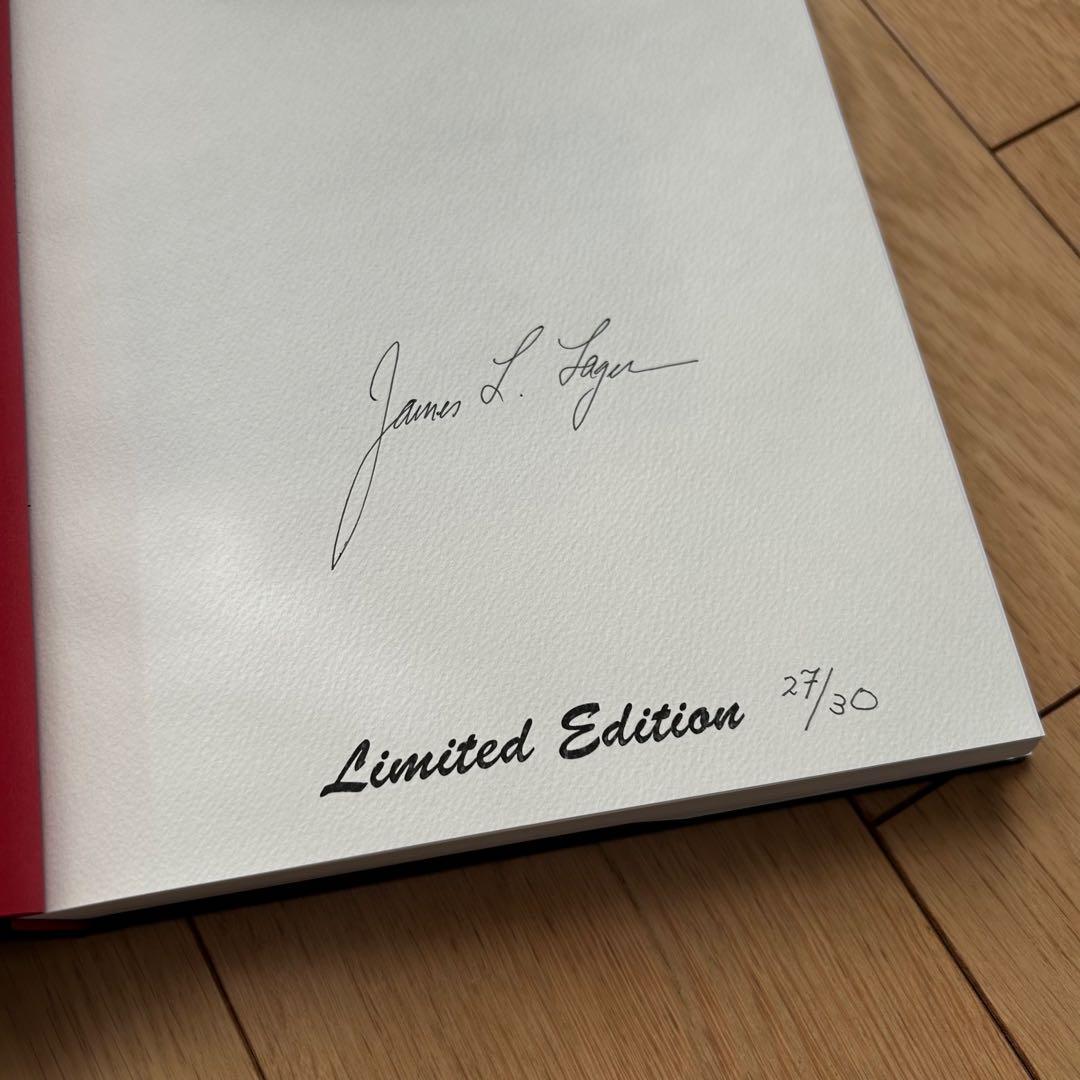 James L. Lager
Limited Edition 27/30